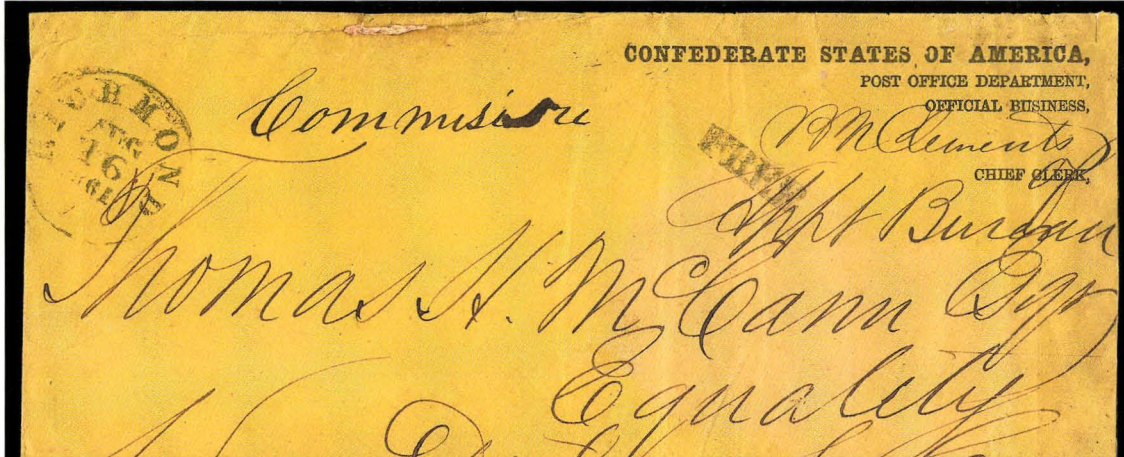 CONFEDERATE STATES OF AMERICA,
POST OFFICE DEPARTMENT,
OFFICIAL BUSINESS,
B N Clements
CHIEF CLERK,
Appt Bureau
RICHMOND
AUG
16
1861
Commission
FREE
Thomas H. McCann Esqr
Equality